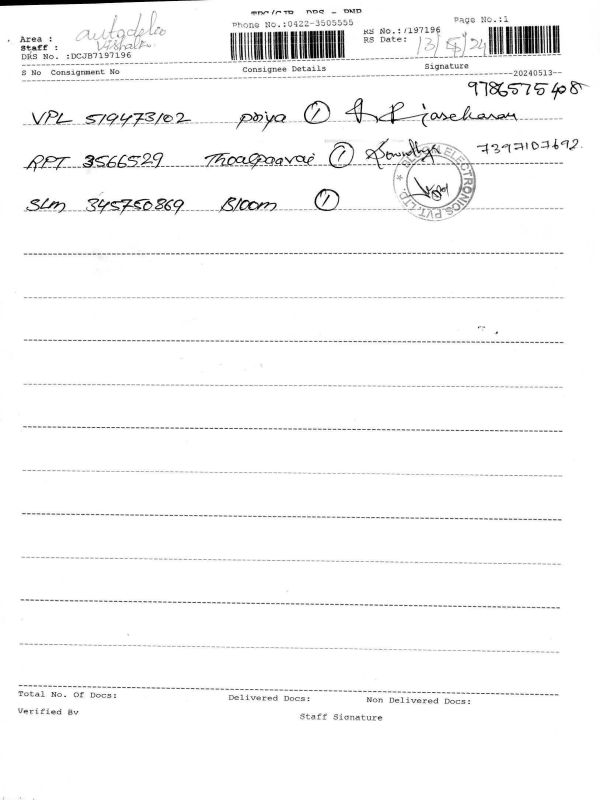 TPC/CJB DRS - PNP
Phone No.:0422-3505555 Page No.:1
Area : autodelio RS No.:7197196
Staff : Vishal RS Date: 13/5/24
DRS No. :DCJB7197196
S No Consignment No Consignee Details Signature
20240513--
9786575408
VPL 519473102 priya 1
RPT 3566529 1 Sowndhya 7397107692.
ELECTRONICS PVT. LTD.
Slm 345750869 Bloom 1
Total No. Of Docs: Delivered Docs: Non Delivered Docs:
Verified By Staff Signature